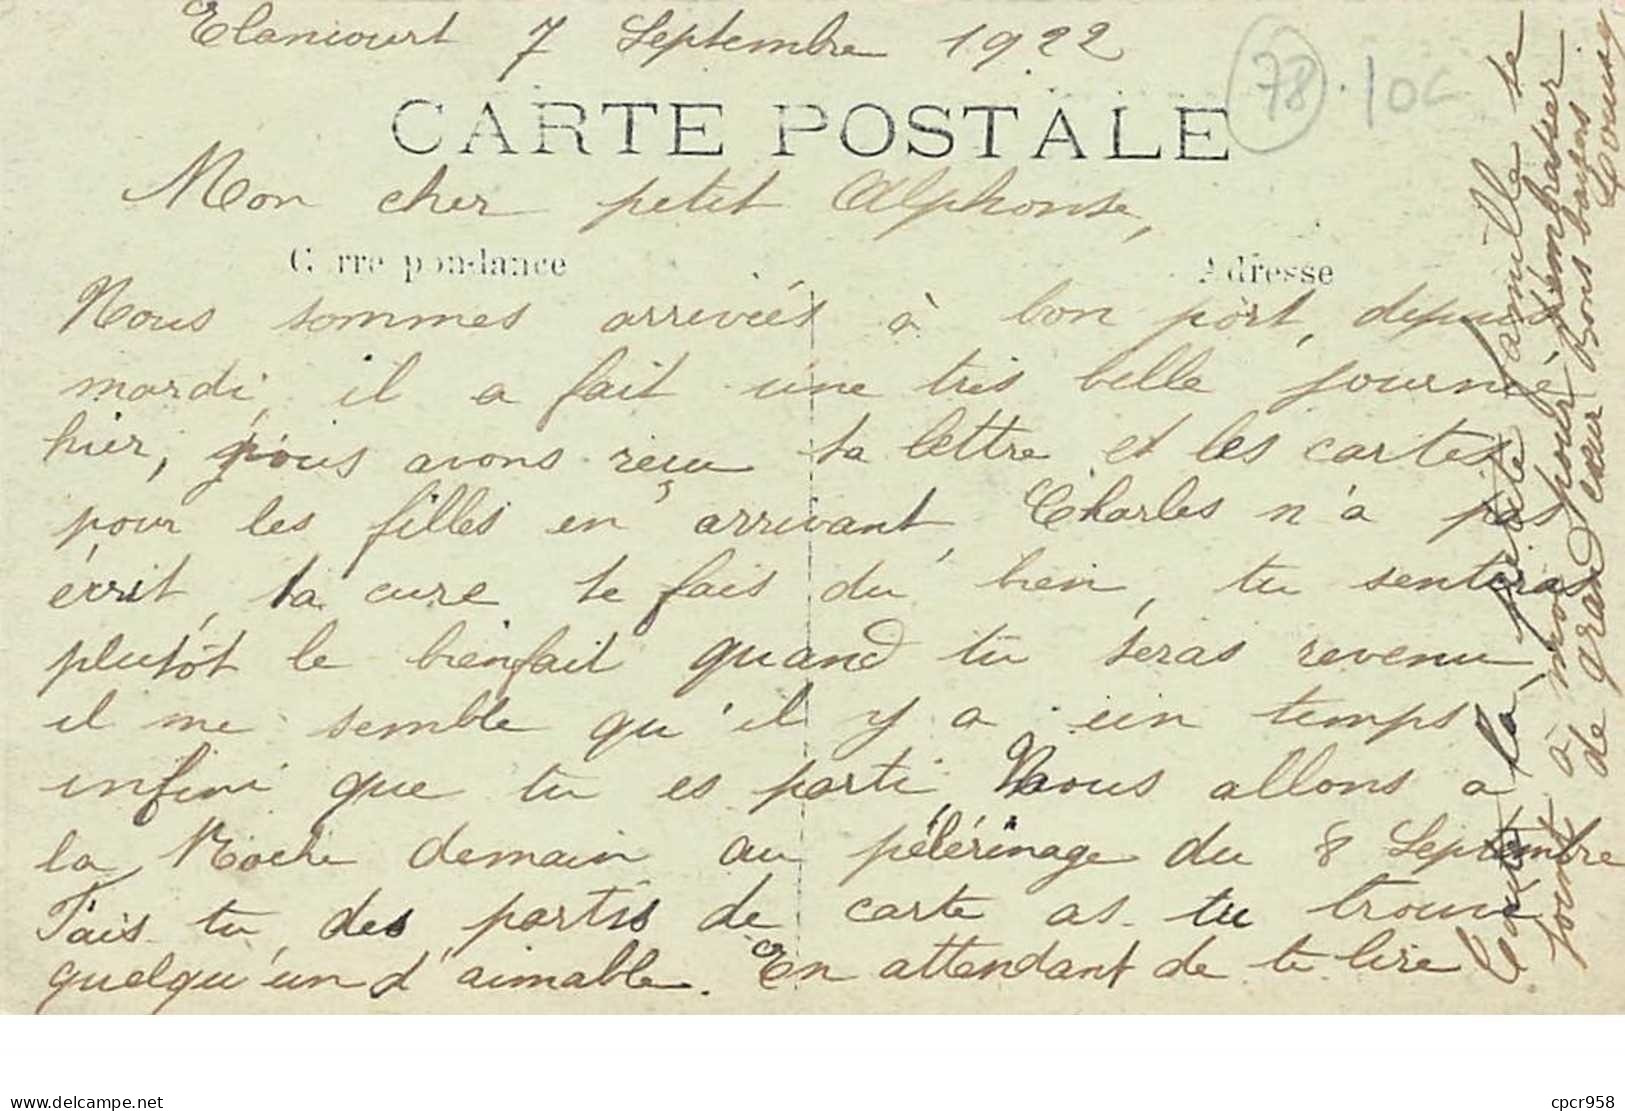 Elancourt 7 Septembre 1922
78 . 10c
CARTE POSTALE
Mon cher petit Alphonse,
Correspondance
Adresse
Nous sommes arrivés à bon port, depuis
mardi, il a fait une très belle journée
hier, nous avons reçu ta lettre et les cartes
pour les filles en arrivant, Charles n'a pas
écrit, ta cure te fais du bien, tu sentiras
plutôt le bienfait quand tu seras revenu
il me semble qu'il y a un temps
infini que tu es parti Nous allons a
la Roche demain au pélérinage du 8 Septembre
Fais tu des partis de carte as-tu trouvé
quelqu'un d'aimable. En attendant de te lire
toute la petite famille se
joint à moi pour t'embrasser
de grand cœur Bons baisers
delcampe.net
cpcr958